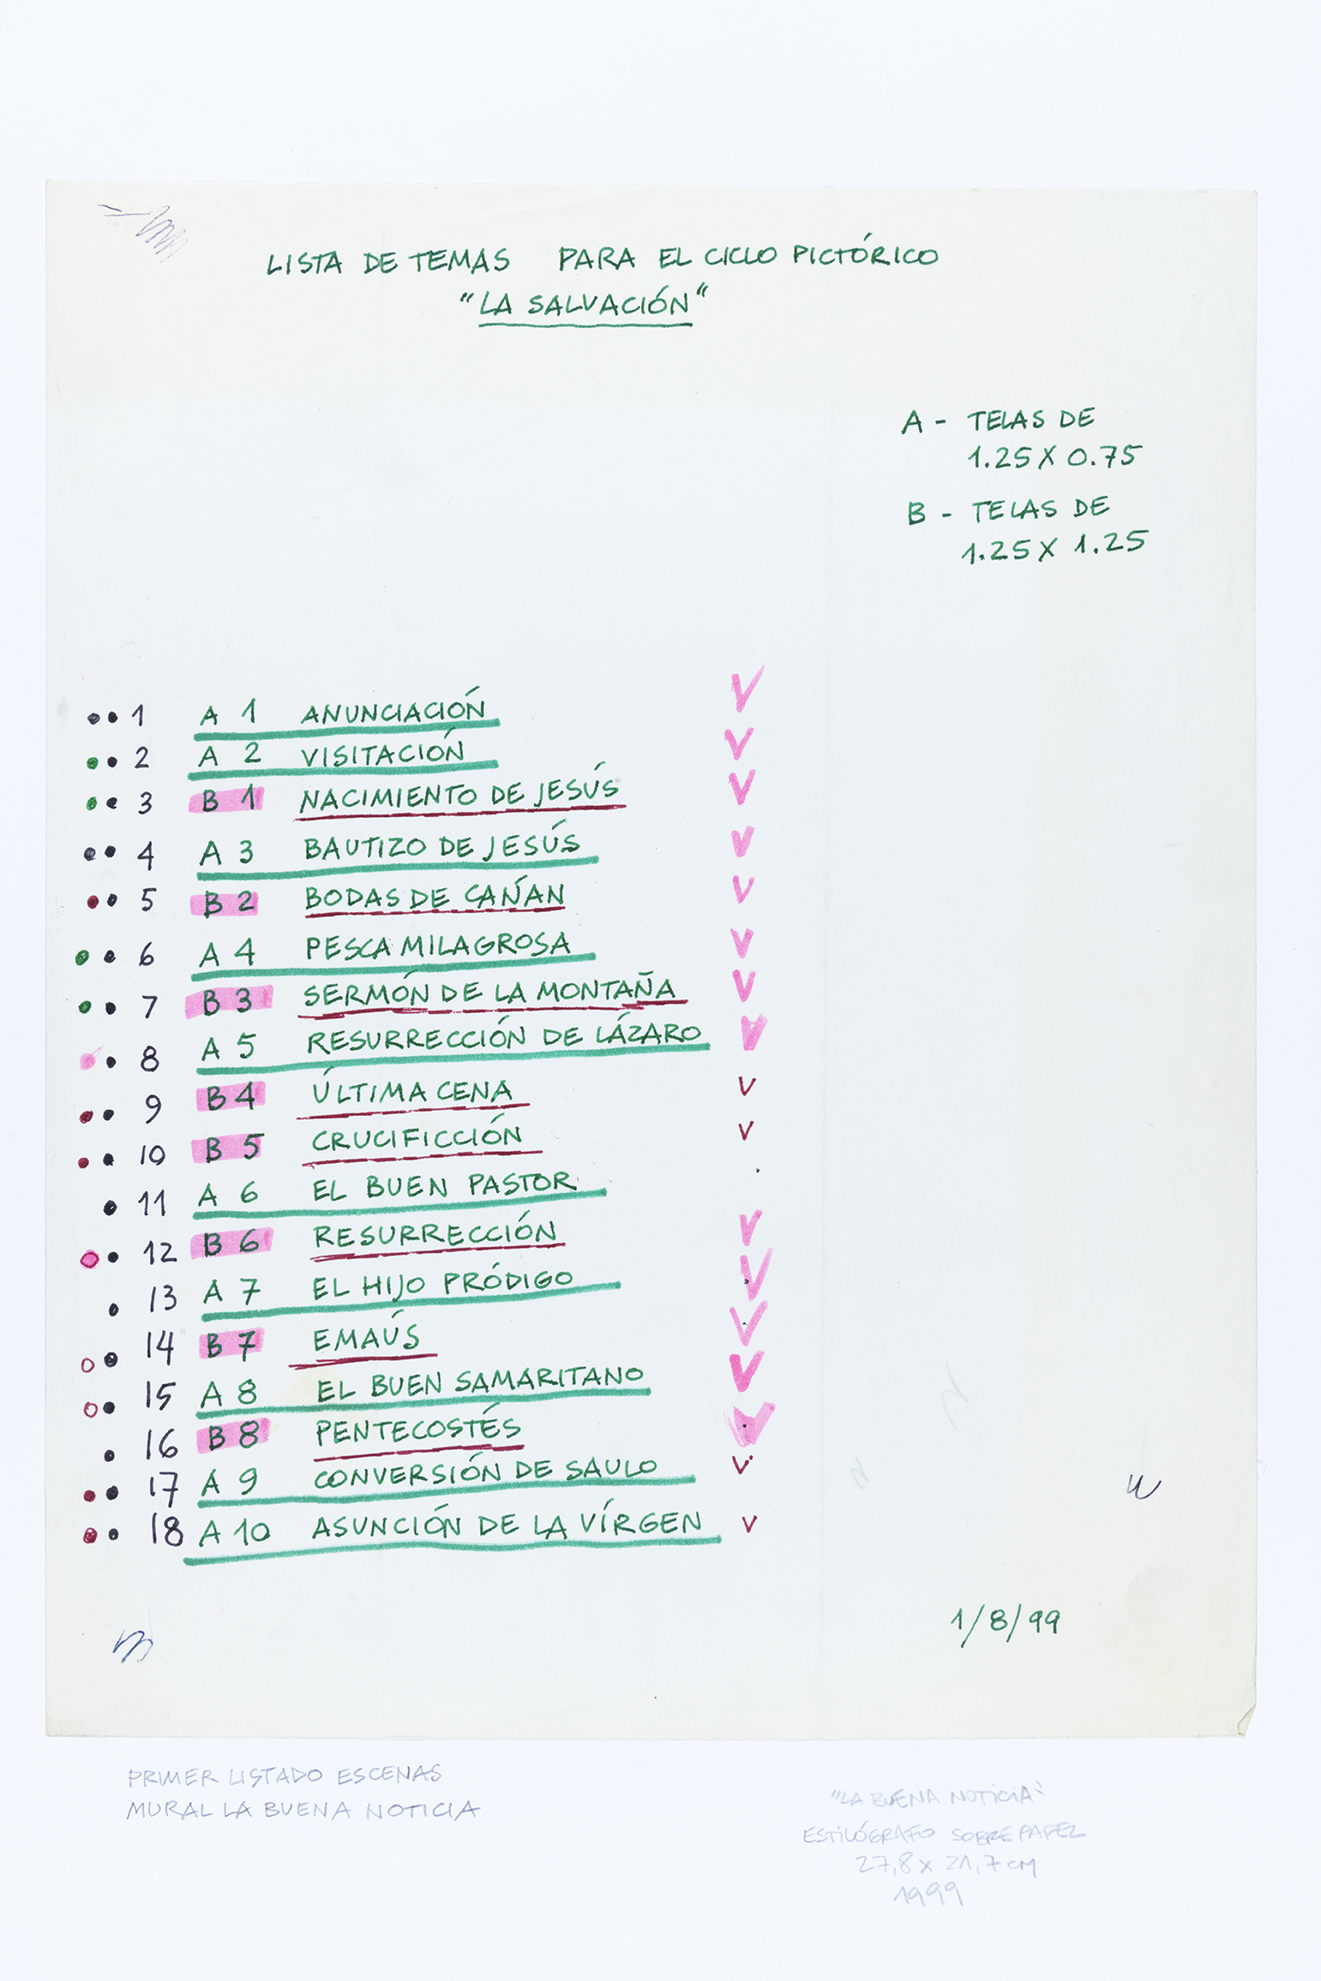 LISTA DE TEMAS PARA EL CICLO PICTÓRICO
"LA SALVACIÓN"
A - TELAS DE
1.25 X 0.75
B - TELAS DE
1.25 X 1.25
1 A 1 ANUNCIACIÓN
2 A 2 VISITACIÓN
3 B 1 NACIMIENTO DE JESÚS
4 A 3 BAUTIZO DE JESÚS
5 B 2 BODAS DE CAŃAN
6 A 4 PESCA MILAGROSA
7 B 3 SERMÓN DE LA MONTAÑA
8 A 5 RESURRECCIÓN DE LÁZARO
9 B 4 ÚLTIMA CENA
10 B 5 CRUCIFICCIÓN
11 A 6 EL BUEN PASTOR
12 B 6 RESURRECCIÓN
13 A 7 EL HIJO PRÓDIGO
14 B 7 EMAÚS
15 A 8 EL BUEN SAMARITANO
16 B 8 PENTECOSTÉS
17 A 9 CONVERSIÓN DE SAULO
18 A 10 ASUNCIÓN DE LA VÍRGEN
1/8/99
PRIMER LISTADO ESCENAS
MURAL LA BUENA NOTICIA
"LA BUENA NOTICIA"
ESTILÓGRAFO SOBRE PAPEL
27,8 x 21,7 cm
1999